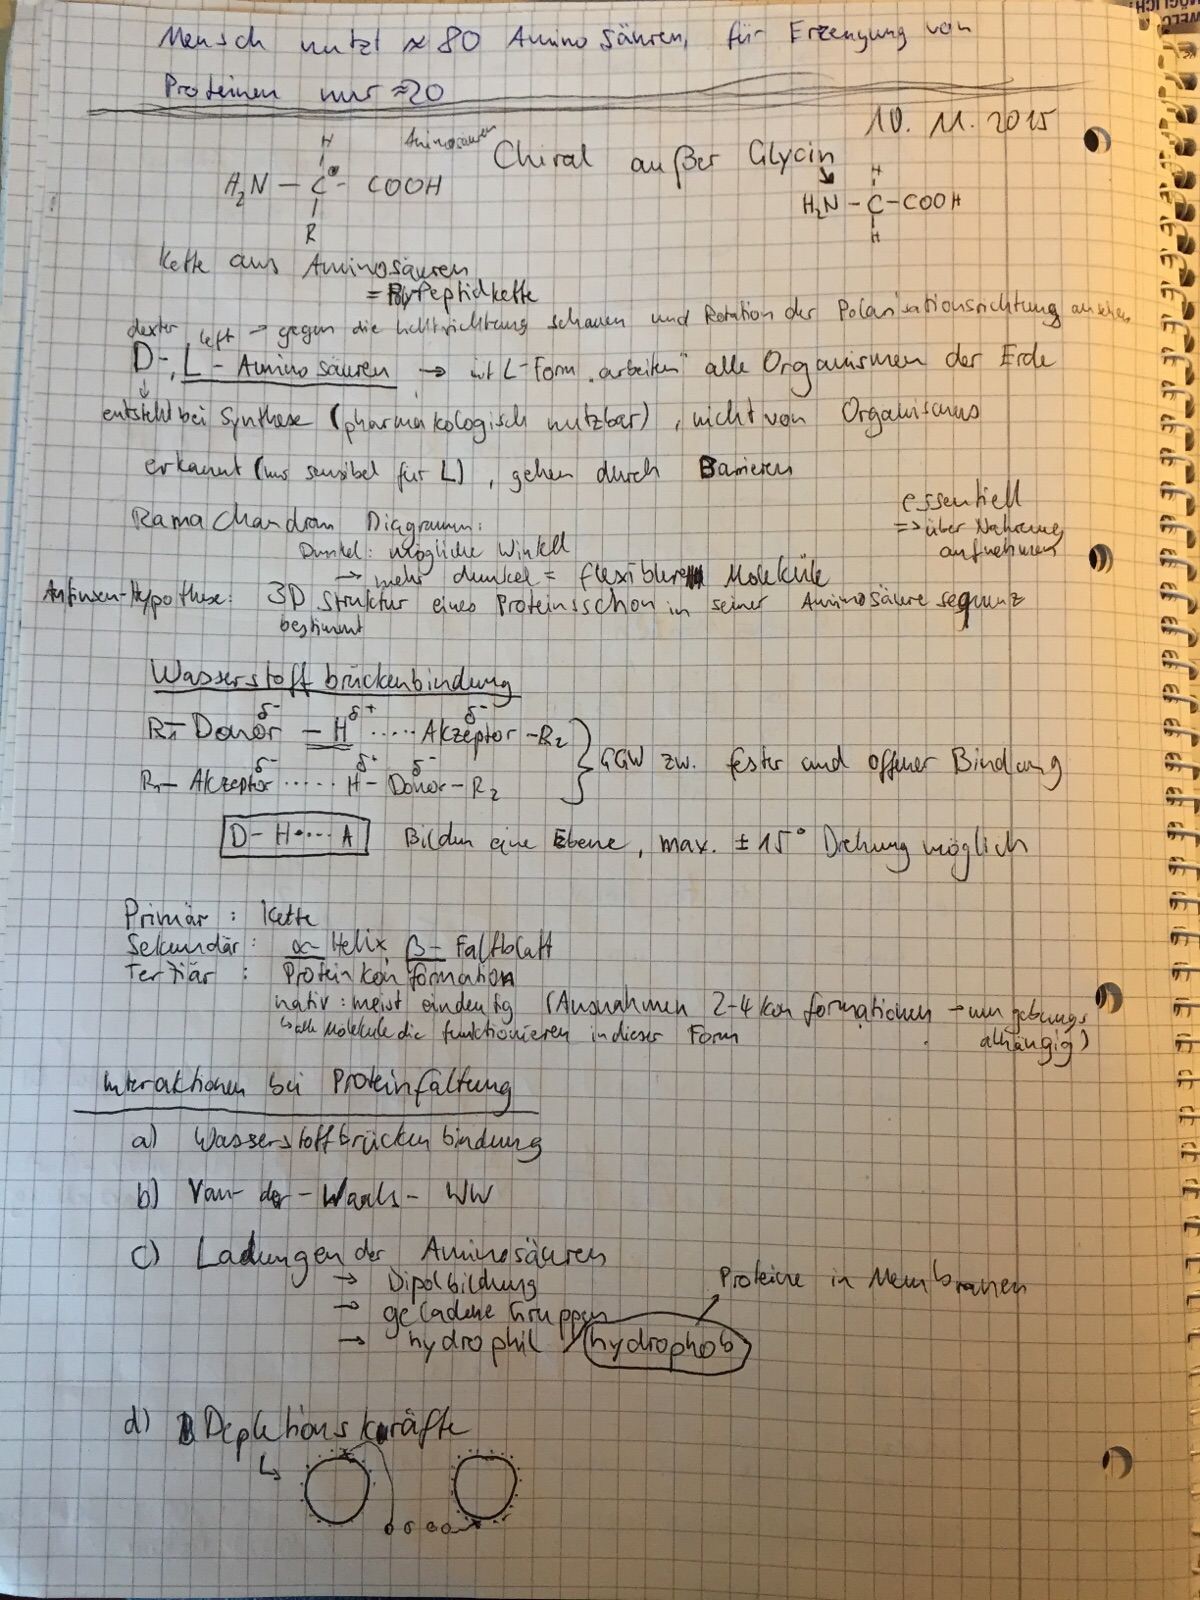 Mensch nutzt ≈ 80 Aminosäuren, für Erzeugung von
Proteinen nur ≈20
10. 11. 2015
Aminosäuren
Chiral außer Glycin
H
H₂N – C* – COOH
R
H
H₂N – C – COOH
H
Kette aus Aminosäuren
= Polypeptidkette
dexter left → gegen die Lichtrichtung schauen und Rotation der Polarisationsrichtung ansehen
D-, L - Aminosäuren → mit L-Form „arbeiten" alle Organismen der Erde
entsteht bei Synthese (pharmakologisch nutzbar), nicht von Organismus
erkannt (nur sensibel für L), gehen durch Barrieren
essentiell
=> über Nahrung
aufnehmen
Rama Chandran Diagramm:
Dunkel: mögliche Winkel
→ mehr dunkel = flexiblere Moleküle
Anfinsen-Hypothese: 3D Struktur eines Proteins schon in seiner Aminosäuresequenz
bestimmt
Wasserstoffbrückenbindung
δ- δ+ δ-
R₁– Donor – H ····· Akzeptor – R₂
δ- δ+ δ-
R₁– Akzeptor ······ H – Donor – R₂
GGW zw. fester und offener Bindung
D – H ···· A Bilden eine Ebene, max. ± 15° Drehung möglich
Primär : Kette
Sekundär : α- Helix, β- Faltblatt
Tertiär : Proteinkonformation
nativ : meist eindeutig (Ausnahmen 2-4 Konformationen → umgebungs
abhängig)
↳ alle Moleküle die funktionieren in dieser Form
Interaktionen bei Proteinfaltung
a) Wasserstoffbrückenbindung
b) Van- der - Waals - WW
c) Ladungen der Aminosäuren
→ Dipolbildung
→ geladene Gruppen
→ hydrophil / hydrophob
Proteine in Membranen
d) Depletionskräfte